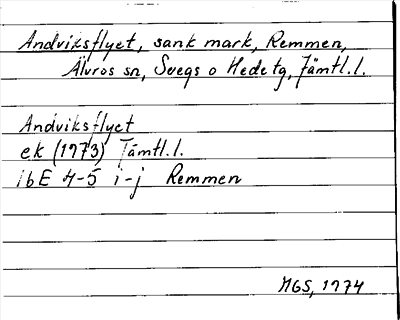 Andviksflyet, sank mark, Remmen,
Älvros sn, Svegs o Hede tg, Jämtl.l.
Andviksflyet
ek (1973) Jämtl.l.
16E 4-5 i-j Remmen
MGS, 1974